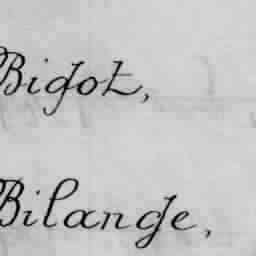 Bigot,
Bilange,